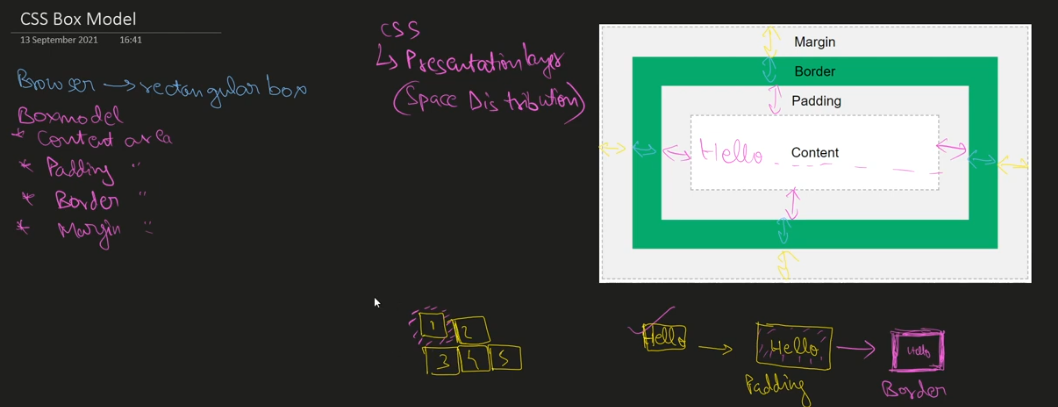 CSS Box Model
13 September 2021 16:41
Browser → rectangular box
Boxmodel
* Content area
* Padding "
* Border "
* Margin "
CSS
↳ Presentation layer
(Space Distribution)
Margin
Border
Padding
Hello
Content
1 2
3 4 5
Hello → Hello → Hello
Padding
Border